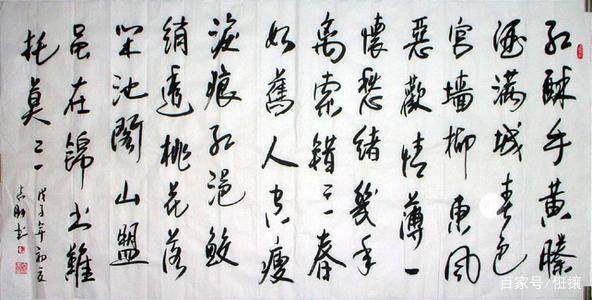 紅酥手黃縢
酒滿城春色
宮墻柳東風
惡歡情薄一
懷愁緒幾年
離索錯〻〻春
如舊人空瘦
淚痕紅浥鮫
綃透桃花落
閑池閣山盟
虽在錦書難
托莫〻〻
戊子年初夏
书
百家号/恇攘